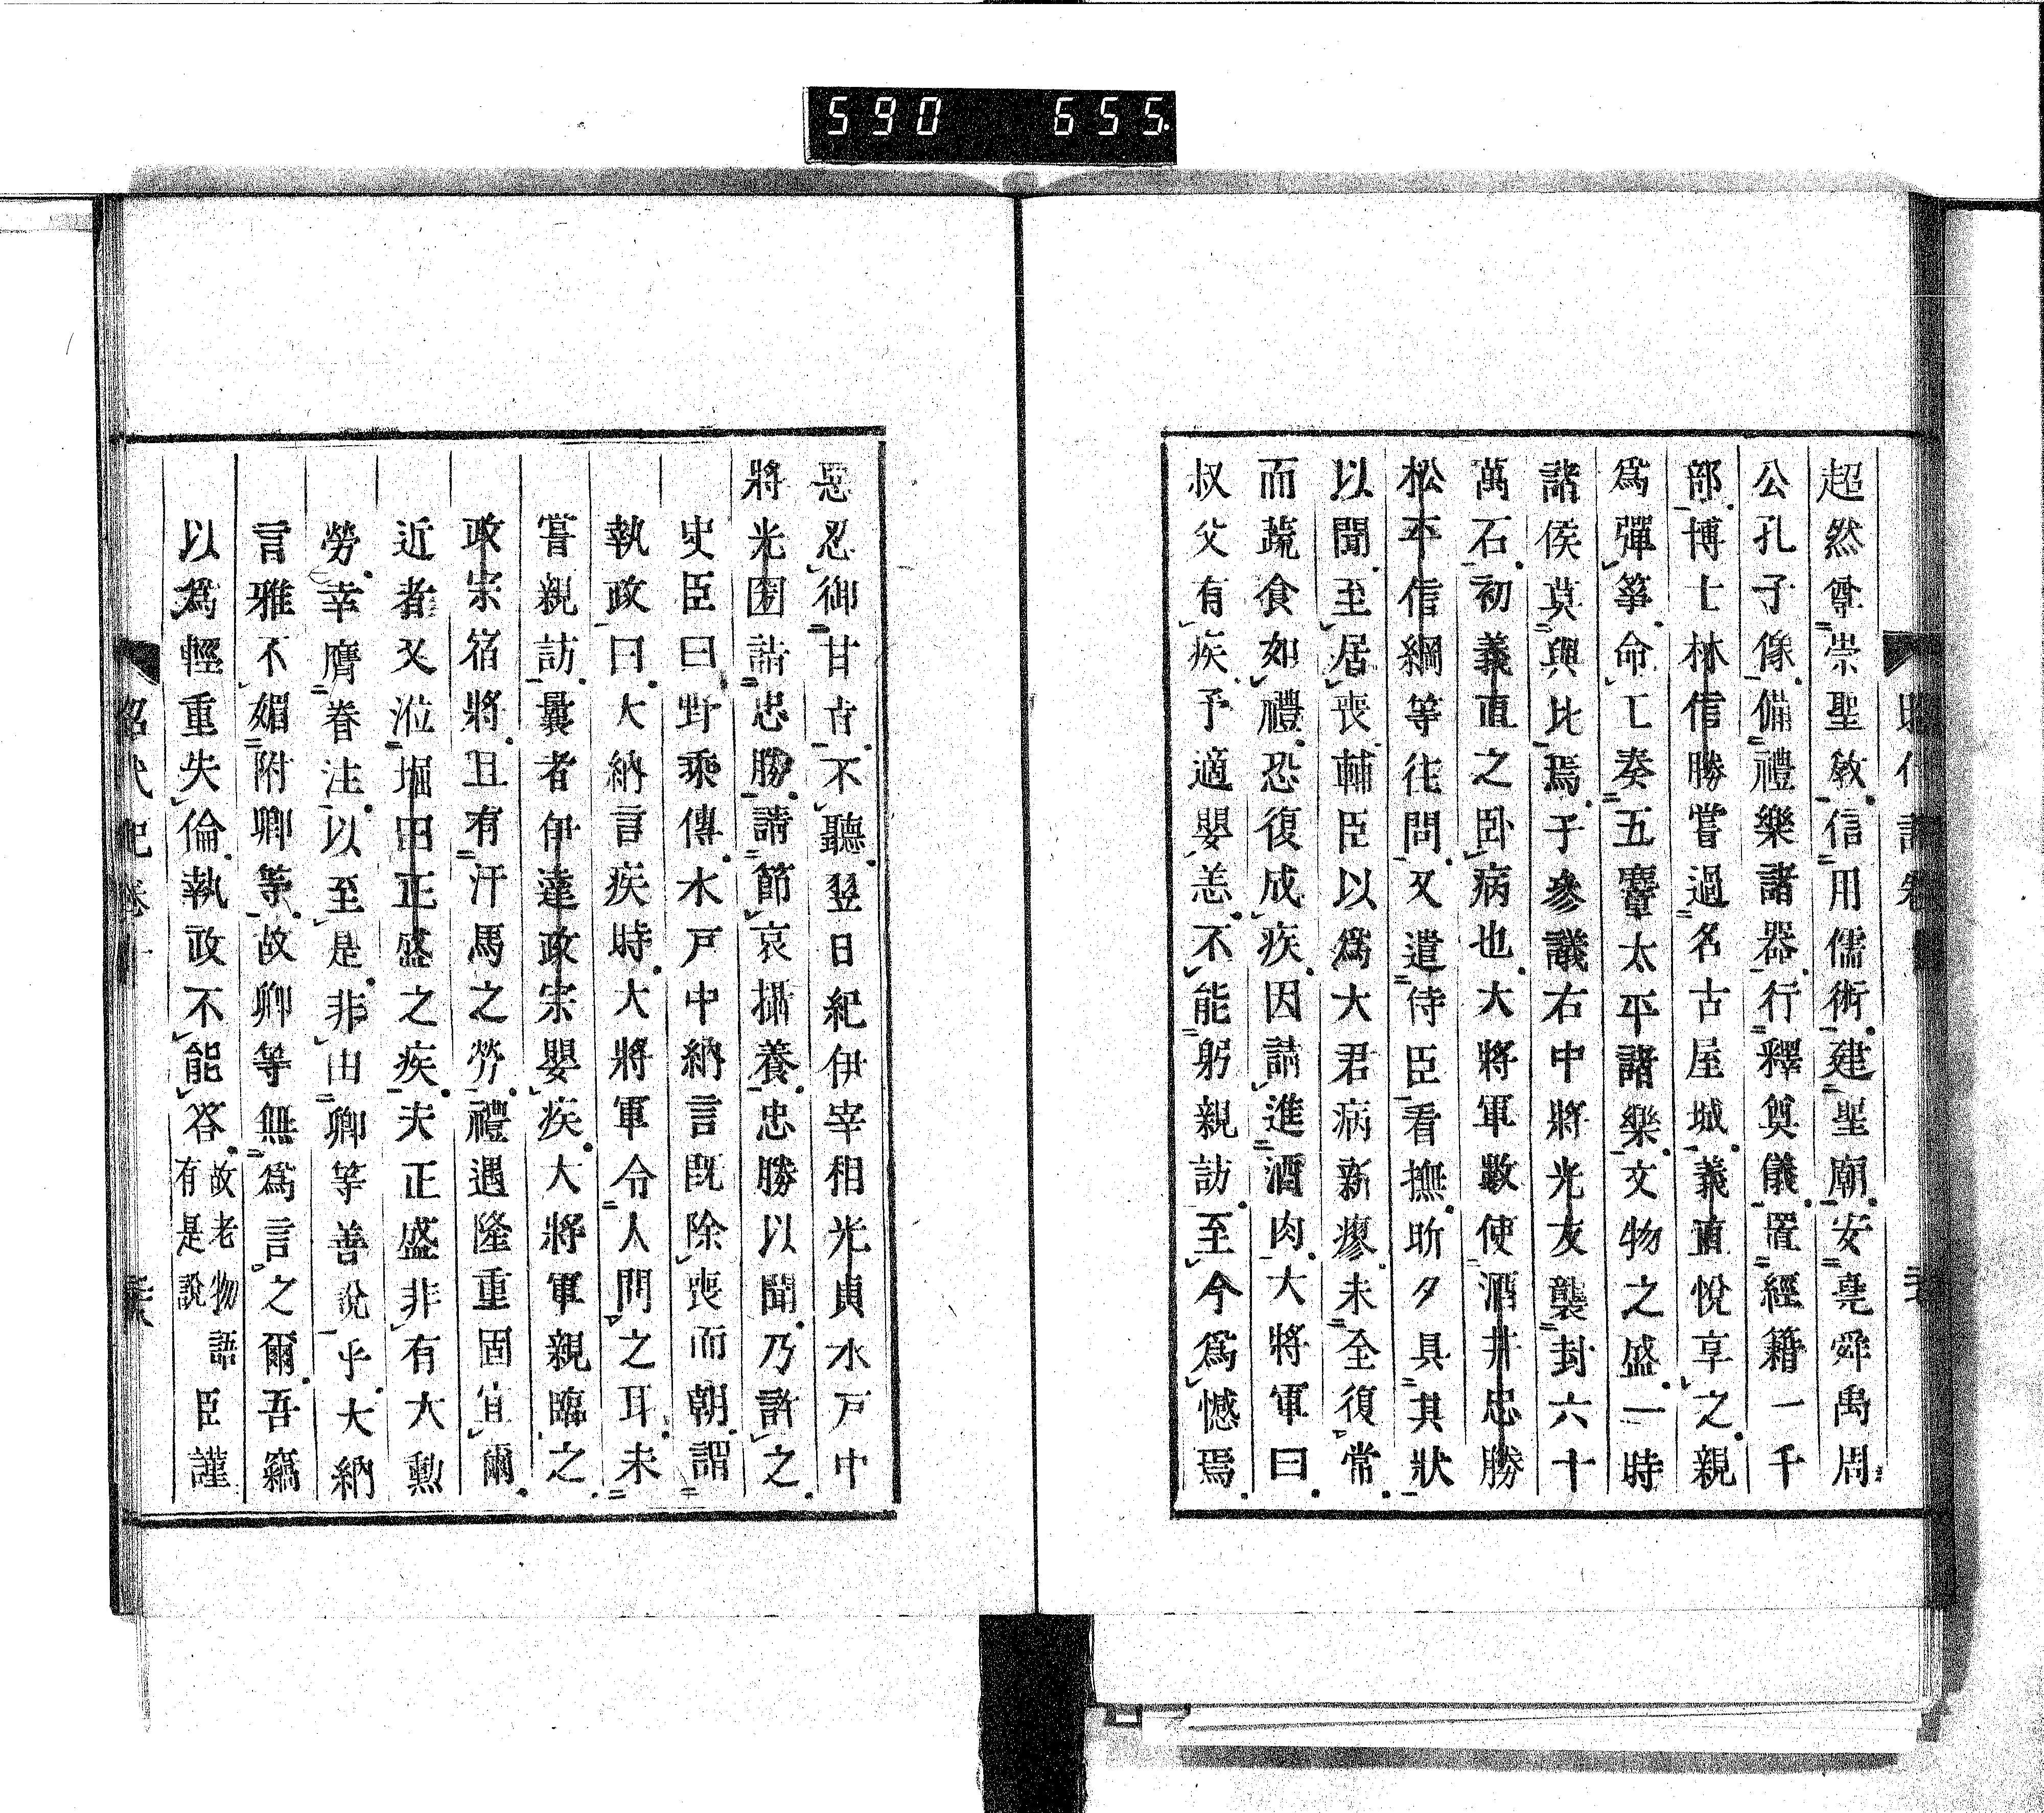 590 655
超然尊崇聖教信用儒術建聖廟安堯舜禹周
公孔子像備禮樂諸器行釋奠儀置經籍一千
部博士林信勝嘗過名古屋城義直悅享之親
爲彈箏命工奏五麞太平諸樂文物之盛一時
諸侯莫與比焉于參議右中將光友襲封六十
萬石初義直之卧病也大將軍數使酒井忠勝
松平信綱等往問又遣侍臣看撫昕夕具其狀
以聞至居喪輔臣以爲大君病新瘳未全復常
而蔬食如禮恐復成疾因請進酒肉大將軍曰
叔父有疾予適嬰恙不能躬親訪至今爲憾焉
忍御甘旨不聽翌日紀伊宰相光貞水戸中
將光圀詰忠勝請節哀攝養忠勝以聞乃許之
史臣曰野乘傳水戸中納言既除喪而朝謂
執政曰大納言疾時大將軍令人問之耳未
嘗親訪曩者伊達政宗嬰疾大將軍親臨之
政宗宿將且有汗馬之勞禮遇隆重固宜爾
近者又涖堀田正盛之疾夫正盛非有大勲
勞幸膺眷注以至是非由卿等善說乎大納
言雅不媚附卿等故卿等無爲言之爾吾竊
以爲輕重失倫執政不能答故老物語有是說臣謹
昭代記卷十